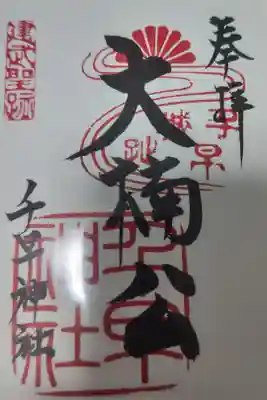 奉拝
大楠公
千早神社
建武聖跡
千早
城
趾
千早神社